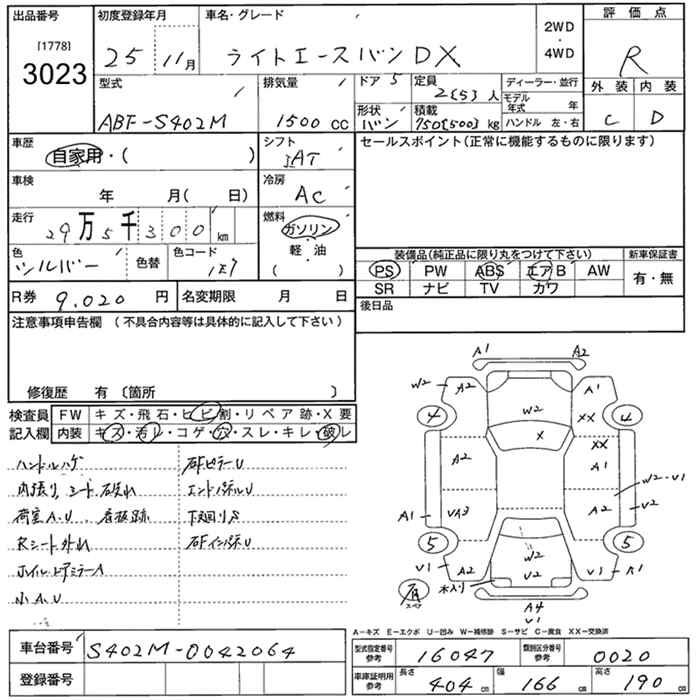 出品番号
[1778]
3023
初度登録年月
25 11月
車名・グレード
ライトエースバンDX
2WD
・
4WD
評価点
R
外装 内装
C D
型式
ABF-S402M
排気量
1500 CC
ドア 5
形状
バン
定員
2(5)人
積載
750(500)kg
ディーラー・並行
モデル年式 年
ハンドル 左・右
車歴
自家用・( )
シフト
AT
セールスポイント(正常に機能するものに限ります)
車検
年 月( 日)
冷房
AC
走行
29万5千300km
燃料
ガソリン
軽・油
( )
色
シルバー
色替
色コード
装備品(純正品に限り丸をつけて下さい)
新車保証書
PS PW ABS エアB AW
SR ナビ TV カワ
有・無
R券 9,020円
名変期限 月 日
後日品
注意事項申告欄(不具合内容等は具体的に記入して下さい)
修復歴 有〔箇所 〕
検査員記入欄
FW キズ・飛石・ヒビ割・リペア跡・X要
内装 キズ・汚レ・コゲ・穴・スレ・キレ・破レ
ハンドルハゲ
内張り シート 破れ
荷室A.U 看板跡
Rシート外れ
ホイル・ドアミラーA
小A.U
右Fピラー U
エンドパネルU
下廻りS
右FインパネU
A1 A2
W2 A2 A1
4 W2 XX 4
X XX
A2 A1
W2-V1
A1 VA3 A2 V2
5 W2 5
V1 A2 V2 V1 R1
スペア
A4
V1
A-キズ E-エクボ U-凹み W-補修跡 S-サビ C-腐食 XX-交換済
車台番号 S402M-0042064
登録番号
型式指定番号参考 16047
類別区分番号参考 0020
車庫証明用参考
長さ 404cm
幅 166cm
高さ 190cm